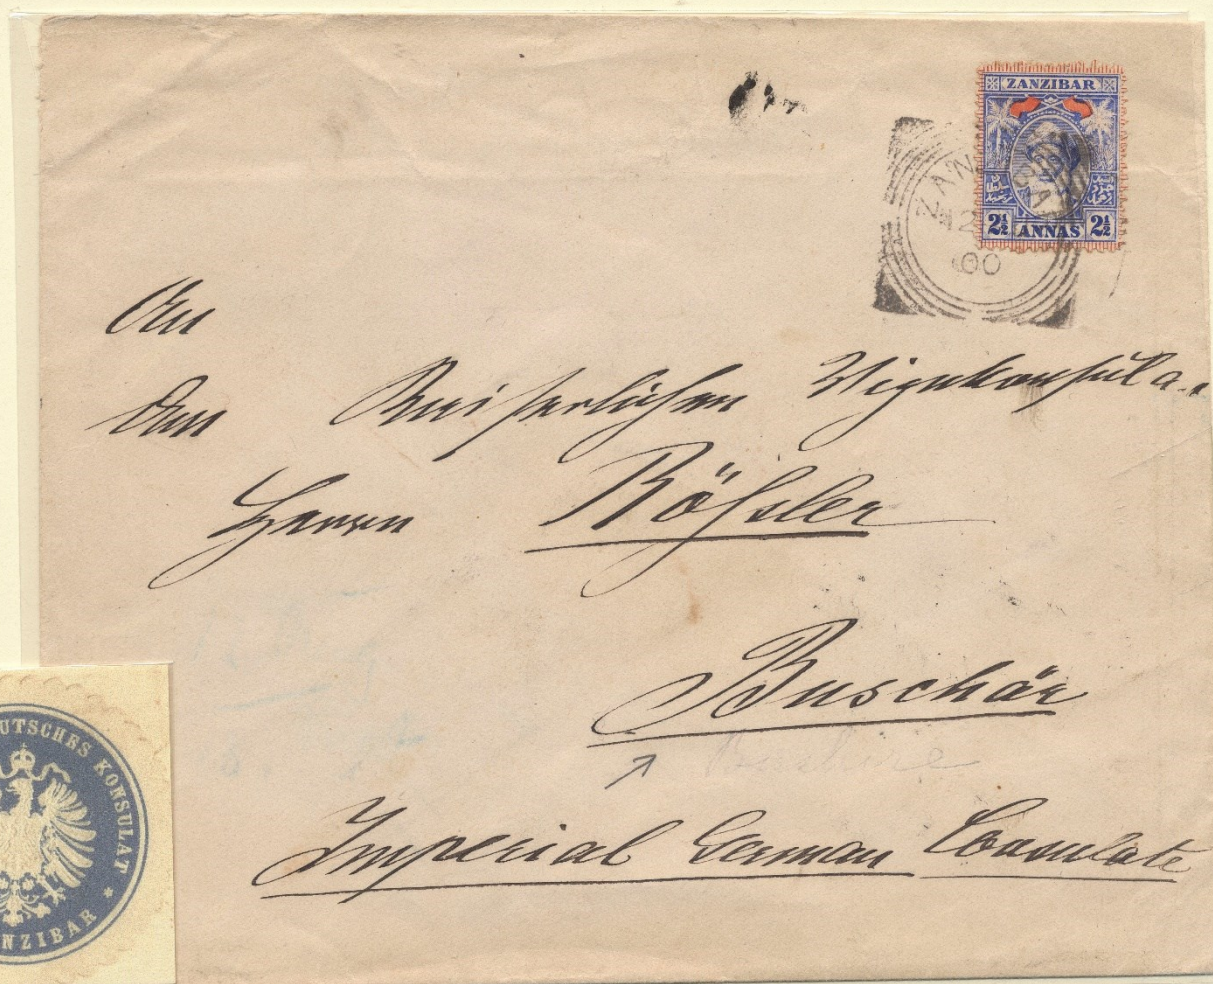 ZANZIBAR
2½ ANNAS 2½
ZAN BAR
00
An
den Kaiserlichen Vizekonsul
Herrn Rößler
Buschär
Bushire
Imperial German Consulate
DEUTSCHES KONSULAT *
ZANZIBAR